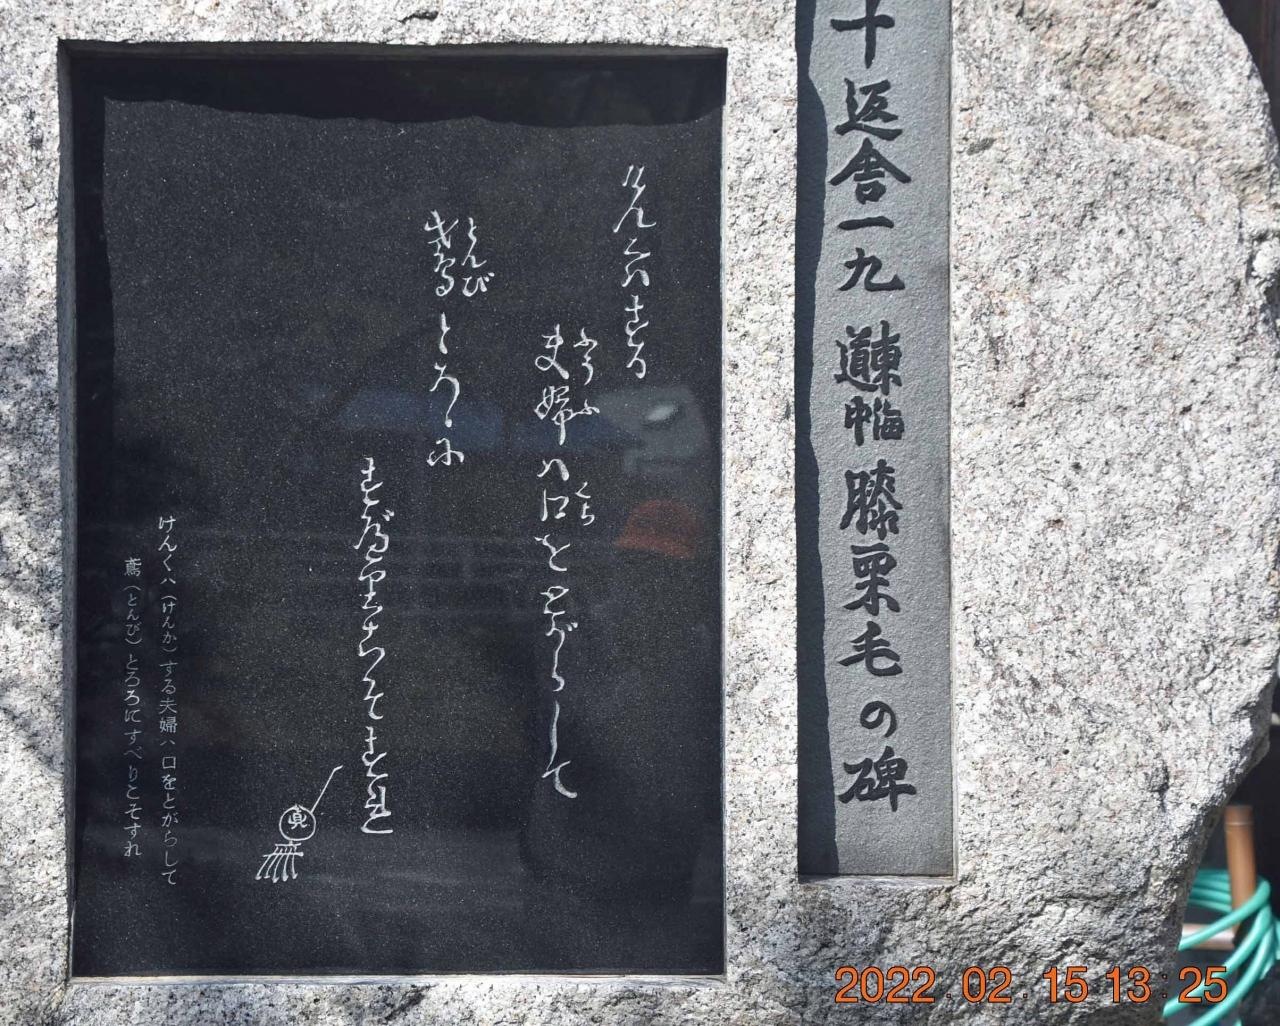 十返舎一九 東海道中 膝栗毛の碑
けんくハする
夫婦ハ口をとがらして
ふうふ
くち
鳶とろゝに
とんび
すべりこそすれ
けんくハ(けんか)する夫婦ハ口をとがらして
鳶(とんび)とろろにすべりこそすれ
2022.02.15 13:25